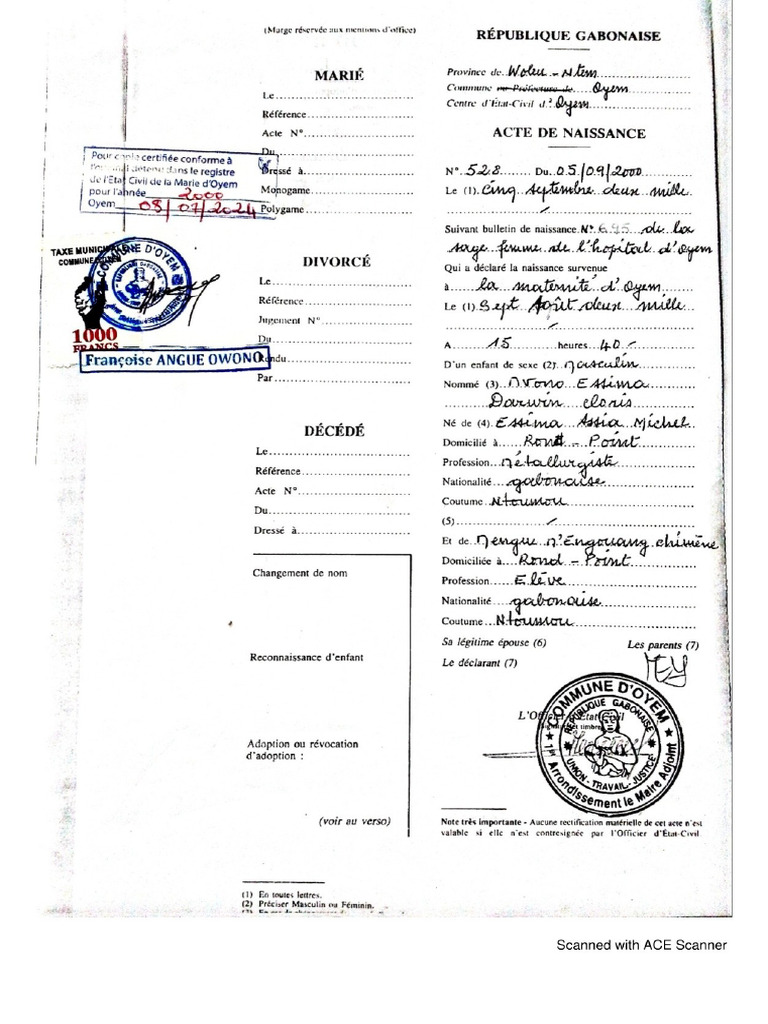 (Marge réservée aux mentions d'office)
MARIÉ
Le
Référence
Acte N°
Du
Dressé à
Monogame
Polygame
Pour copie certifiée conforme à
détenu dans le registre
de l'Etat Civil de la Marie d'Oyem
pour l'année 2000
Oyem 08/07/2024
TAXE MUNICIPALE
COMMUNE D'OYEM
COMMUNE D'OYEM
1000
FRANCS
Françoise ANGUE OWONO
DIVORCÉ
Le
Référence
Jugement N°
Du
Rendu
Par
DÉCÉDÉ
Le
Référence
Acte N°
Du
Dressé à
Changement de nom
Reconnaissance d'enfant
Adoption ou révocation
d'adoption :
(voir au verso)
(1) En toutes lettres.
(2) Préciser Masculin ou Féminin.
RÉPUBLIQUE GABONAISE
Province de Woleu - Ntem
Commune ou Préfecture de Oyem
Centre d'État-Civil d' Oyem
ACTE DE NAISSANCE
N° 528 Du 05/09/2000
Le (1) Cinq septembre deux mille
Suivant bulletin de naissance N° 695 de la
sage femme de l'hopital d'Oyem
Qui a déclaré la naissance survenue
à la maternité d'Oyem
Le (1) Sept Août deux mille
A 15 heures 40
D'un enfant de sexe (2) Masculin
Nommé (3) Mvono Essima
Darwin cloris
Né de (4) Essima Assia Michel
Domicilié à Rond - Point
Profession Métallurgiste
Nationalité gabonaise
Coutume Ntoumou
(5)
Et de Mengue M'Engouang chimène
Domiciliée à Rond - Point
Profession Elève
Nationalité gabonaise
Coutume Ntoumou
Sa légitime épouse (6) Les parents (7)
Le déclarant (7)
L'Officier d'État Civil
COMMUNE D'OYEM
RÉPUBLIQUE GABONAISE
UNION - TRAVAIL - JUSTICE
1er Arrondissement le Maire Adjoint
Note très importante - Aucune rectification matérielle de cet acte n'est
valable si elle n'est contresignée par l'Officier d'État-Civil
Scanned with ACE Scanner